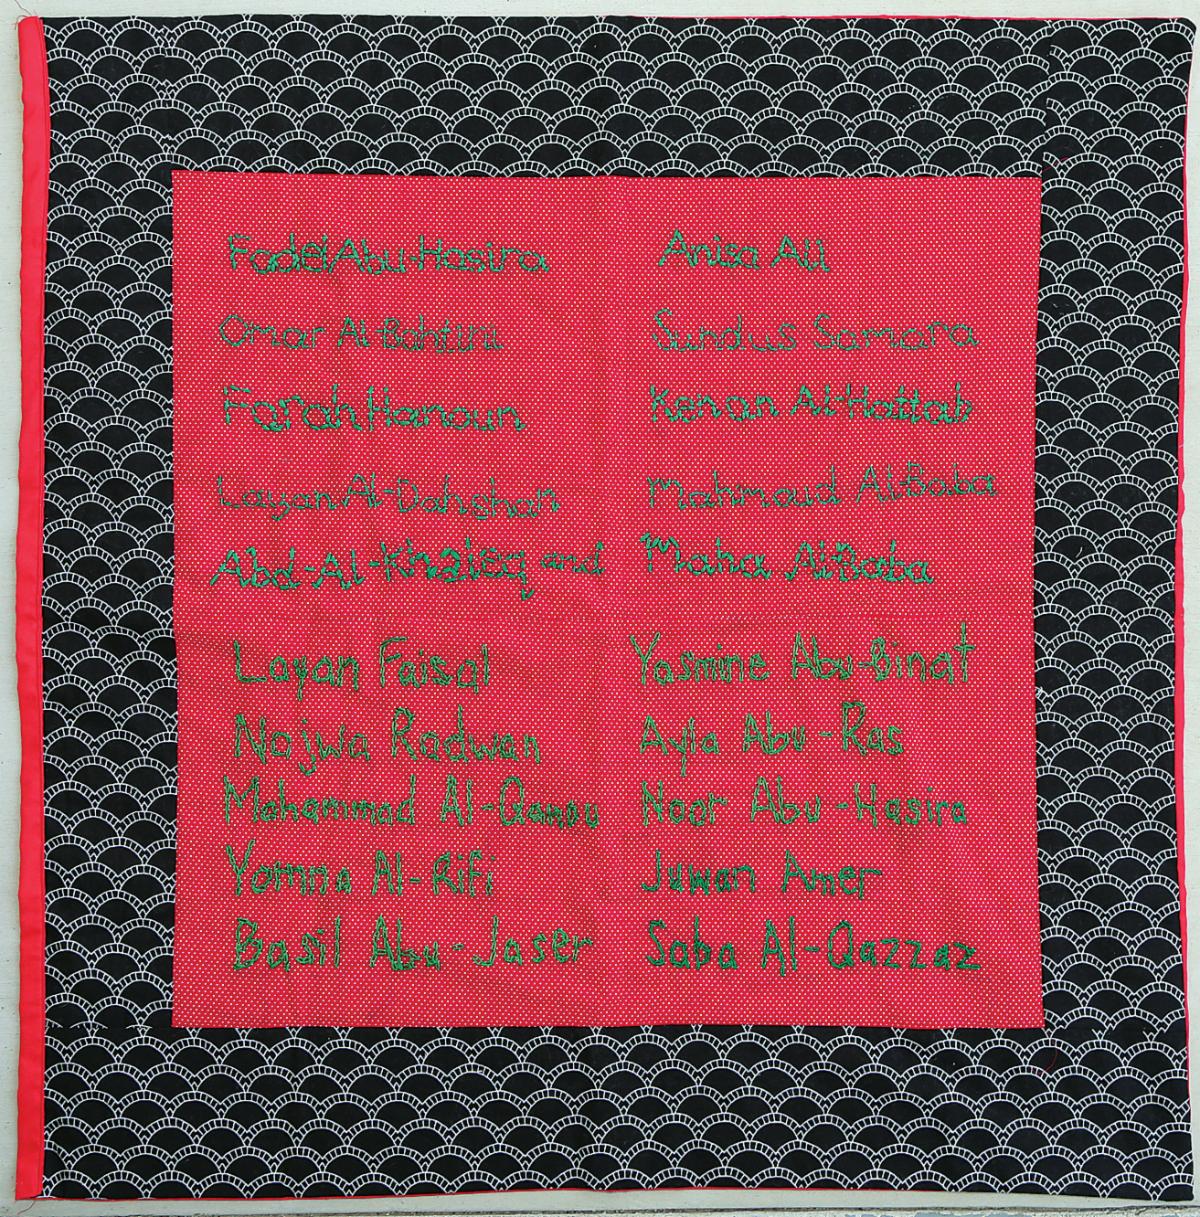 Fadel Abu-Hasira
Omar Al-Bahtini
Farah Hanoun
Layan Al-Dahshan
Abd-Al-Khaleq and
Layan Faisal
Najwa Radwan
Mohammad Al-Qanou
Yomna Al-Rifi
Basil Abu-Jaser
Anisa Ali
Sundus Samara
Kenan Al-Hattab
Mahmoud Al-Baba
Maha Al-Baba
Yasmine Abu-Binat
Ayla Abu-Ras
Noor Abu-Hasira
Juwan Amer
Saba Al-Qazzaz